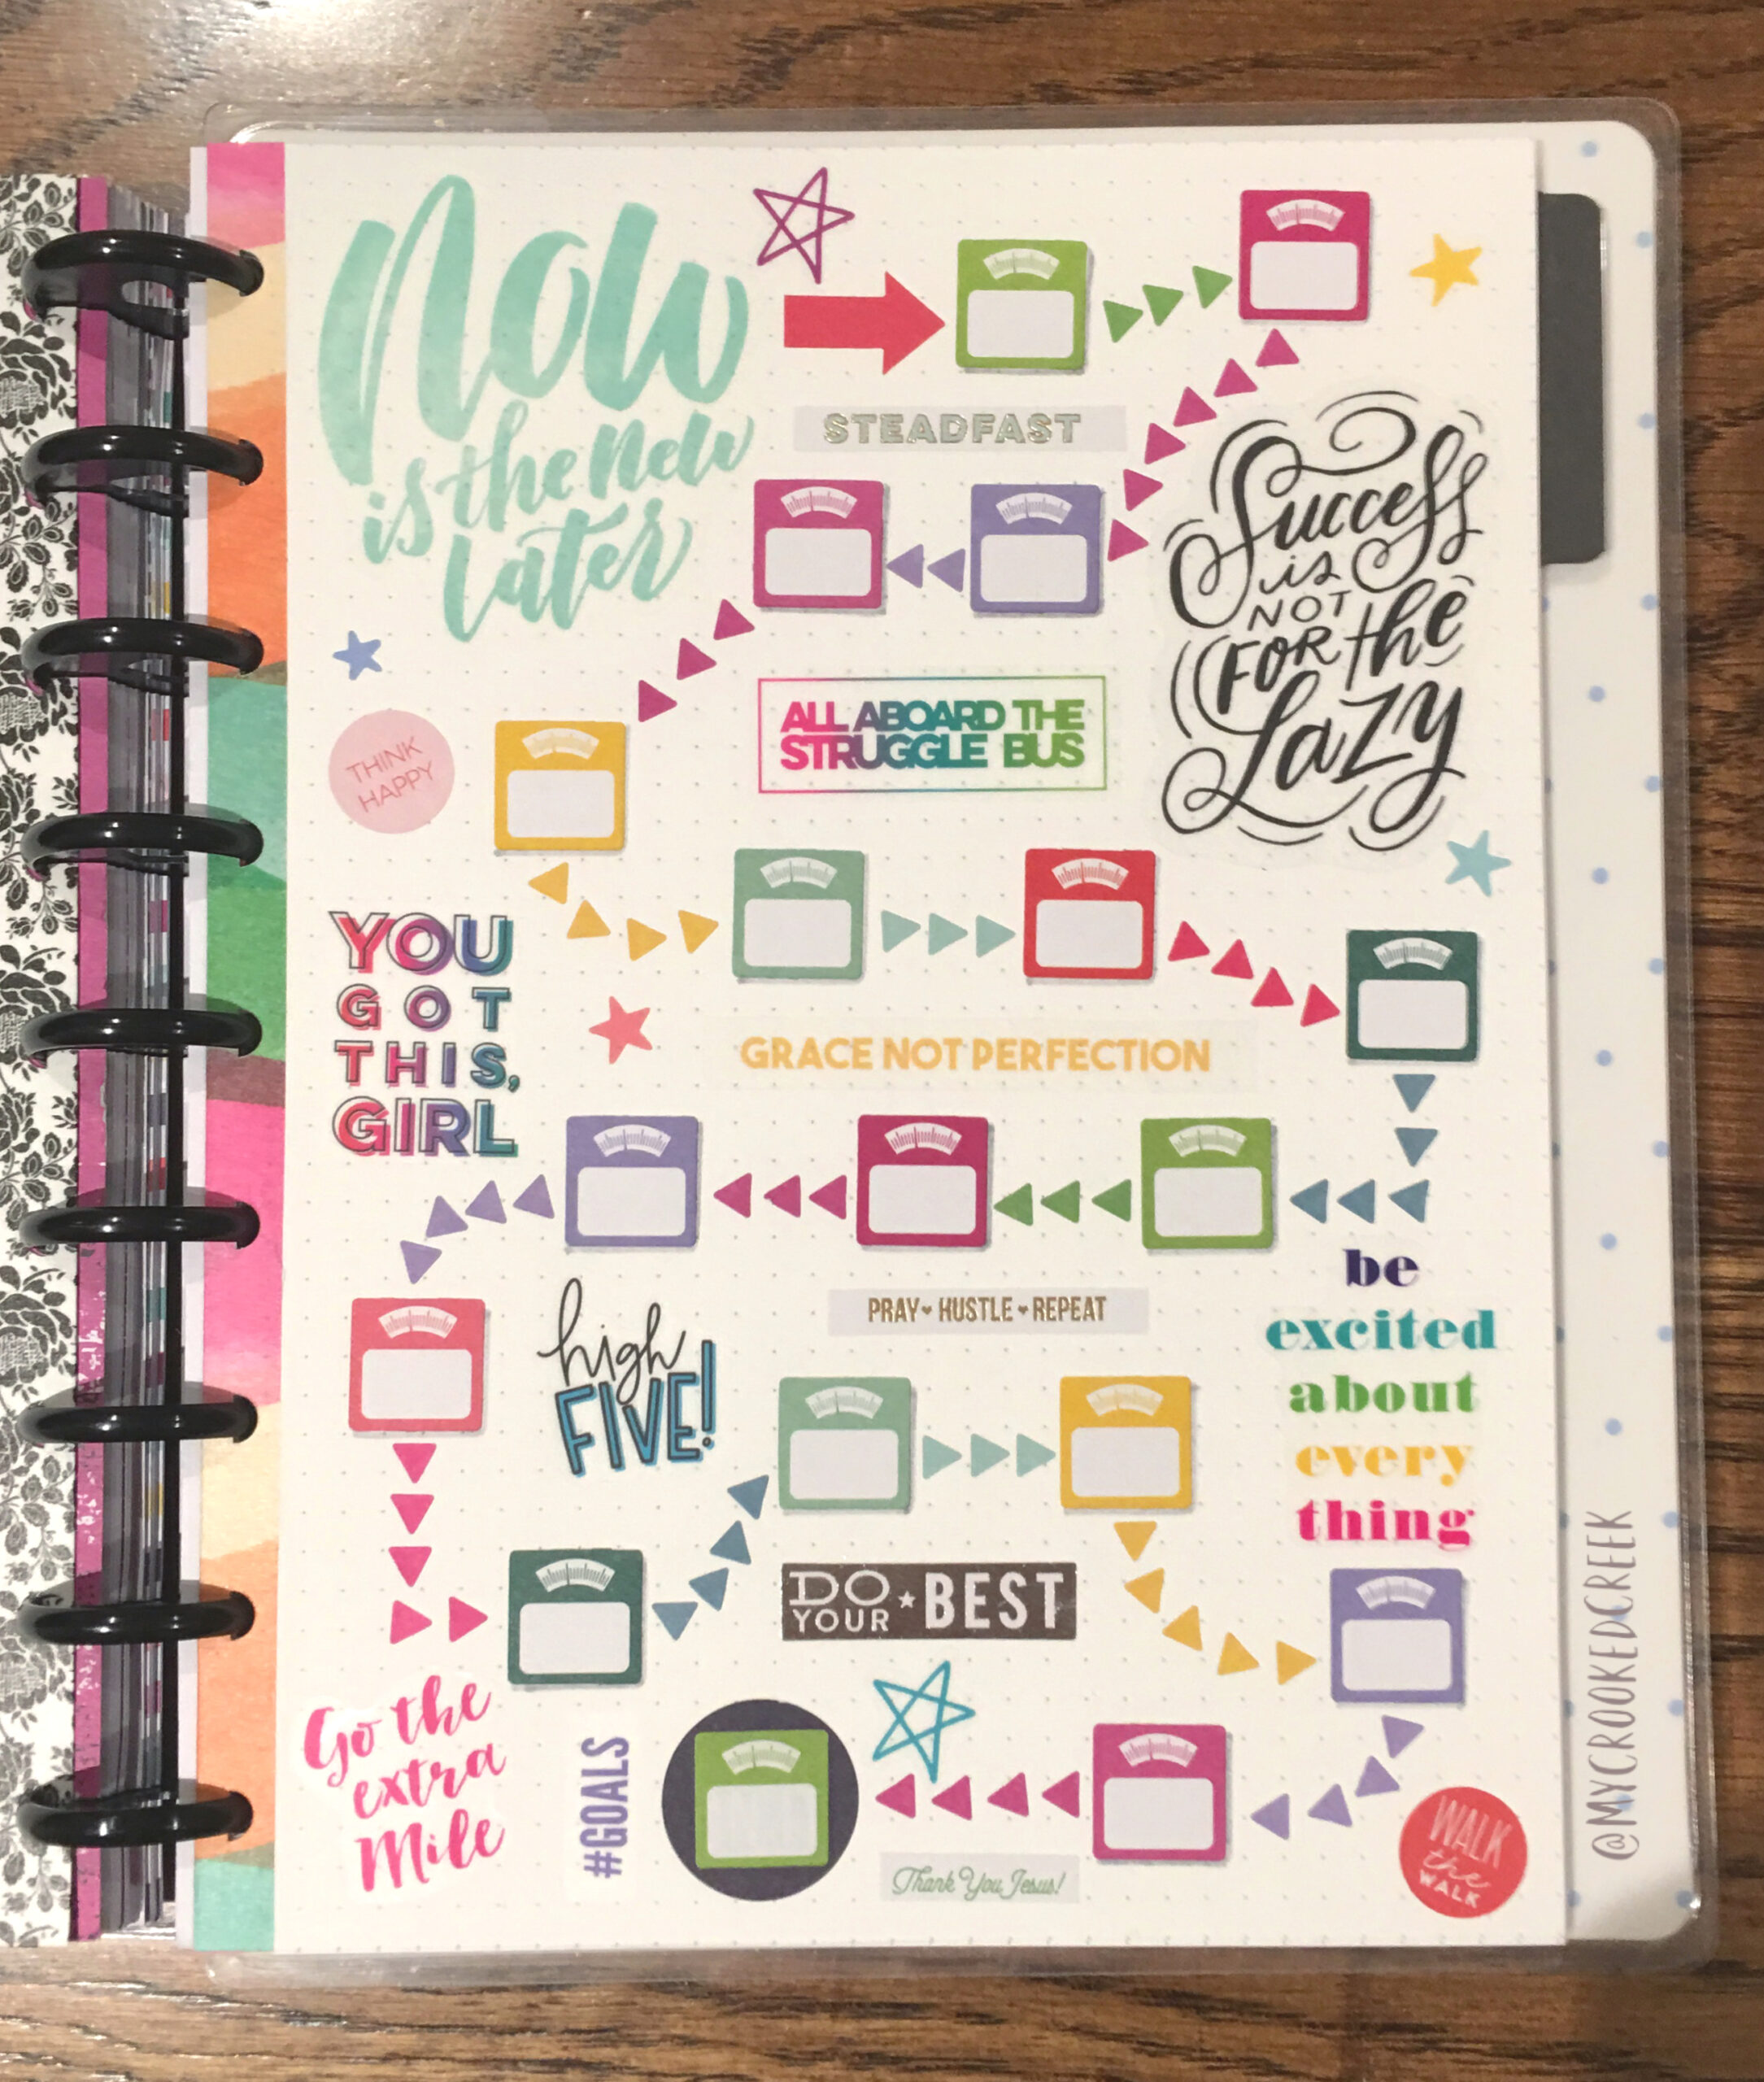 Now
is the new
later
STEADFAST
Success
is
NOT
FOR the
Lazy
ALL ABOARD THE
STRUGGLE BUS
THINK
HAPPY
YOU
GOT
THIS,
GIRL
GRACE NOT PERFECTION
high
FIVE!
PRAY ♥ HUSTLE ♥ REPEAT
be
excited
about
every
thing
DO
YOUR ★ BEST
Go the
extra
Mile
#GOALS
Thank You Jesus!
WALK
the
WALK
@MYCROOKEDCREEK